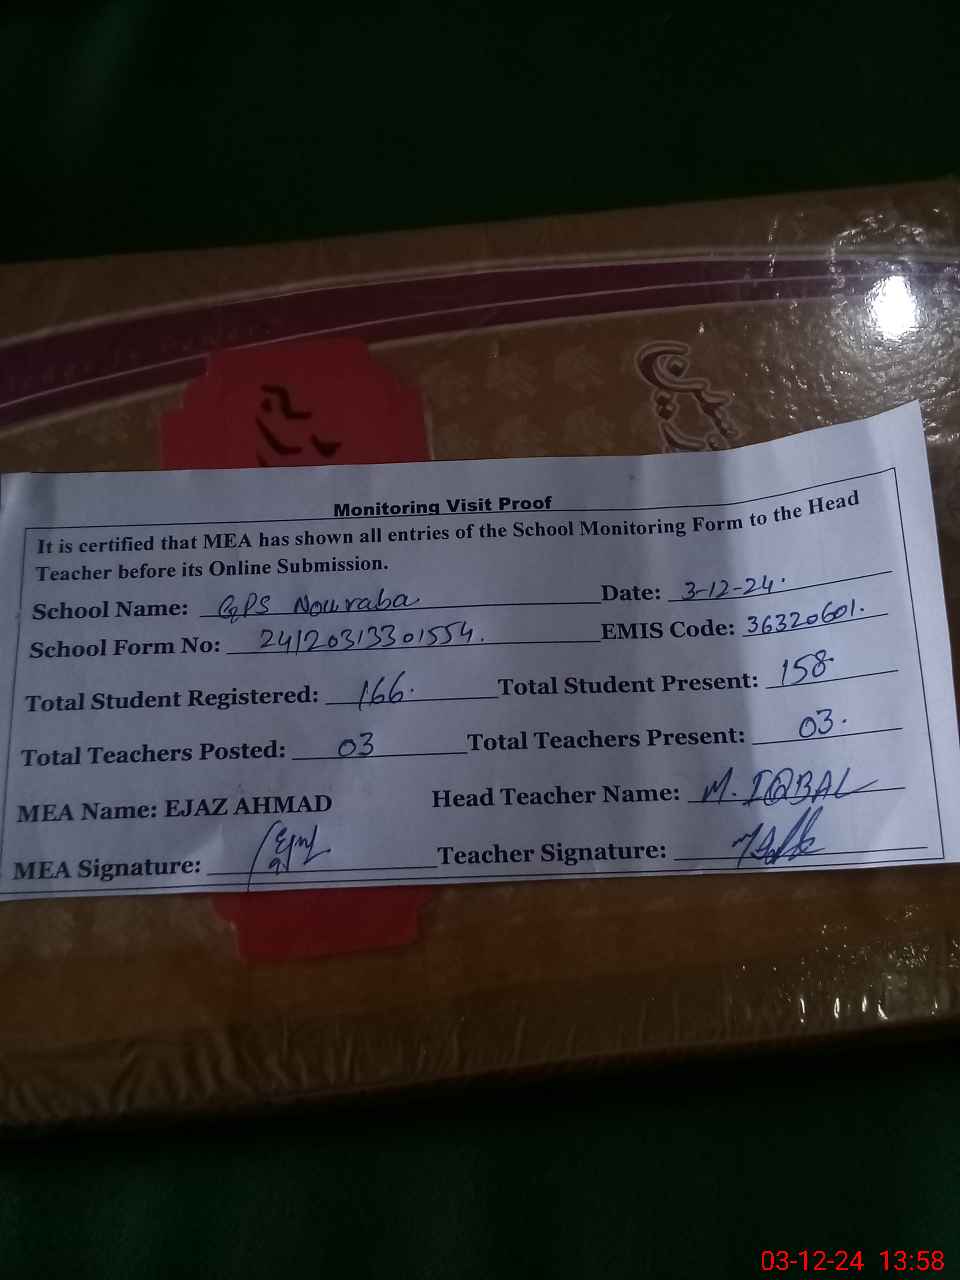 Monitoring Visit Proof
It is certified that MEA has shown all entries of the School Monitoring Form to the Head
Teacher before its Online Submission.
School Name: GPS Nouraba Date: 3-12-24.
School Form No: 24120313301554. EMIS Code: 36320601.
Total Student Registered: 166. Total Student Present: 158.
Total Teachers Posted: 03 Total Teachers Present: 03.
MEA Name: EJAZ AHMAD Head Teacher Name: M. IQBAL
MEA Signature: Teacher Signature:
03-12-24 13:58